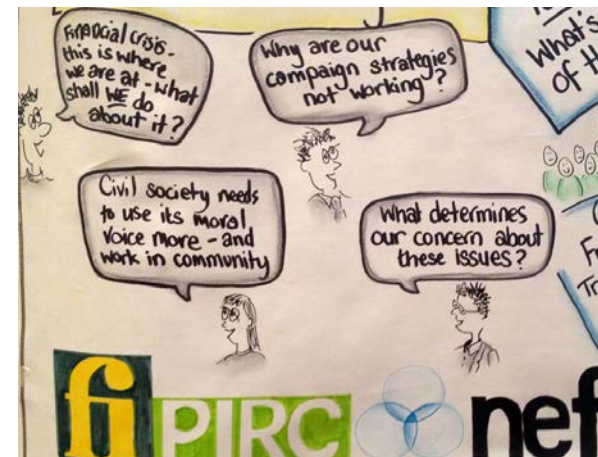 Financial crisis -
this is where
we are at - what
shall WE do
about it?
Why are our
campaign strategies
not working?
What's
of th
Civil society needs
to use its moral
voice more - and
work in community
What determines
our concern about
these issues?
fi
PIRC
nef